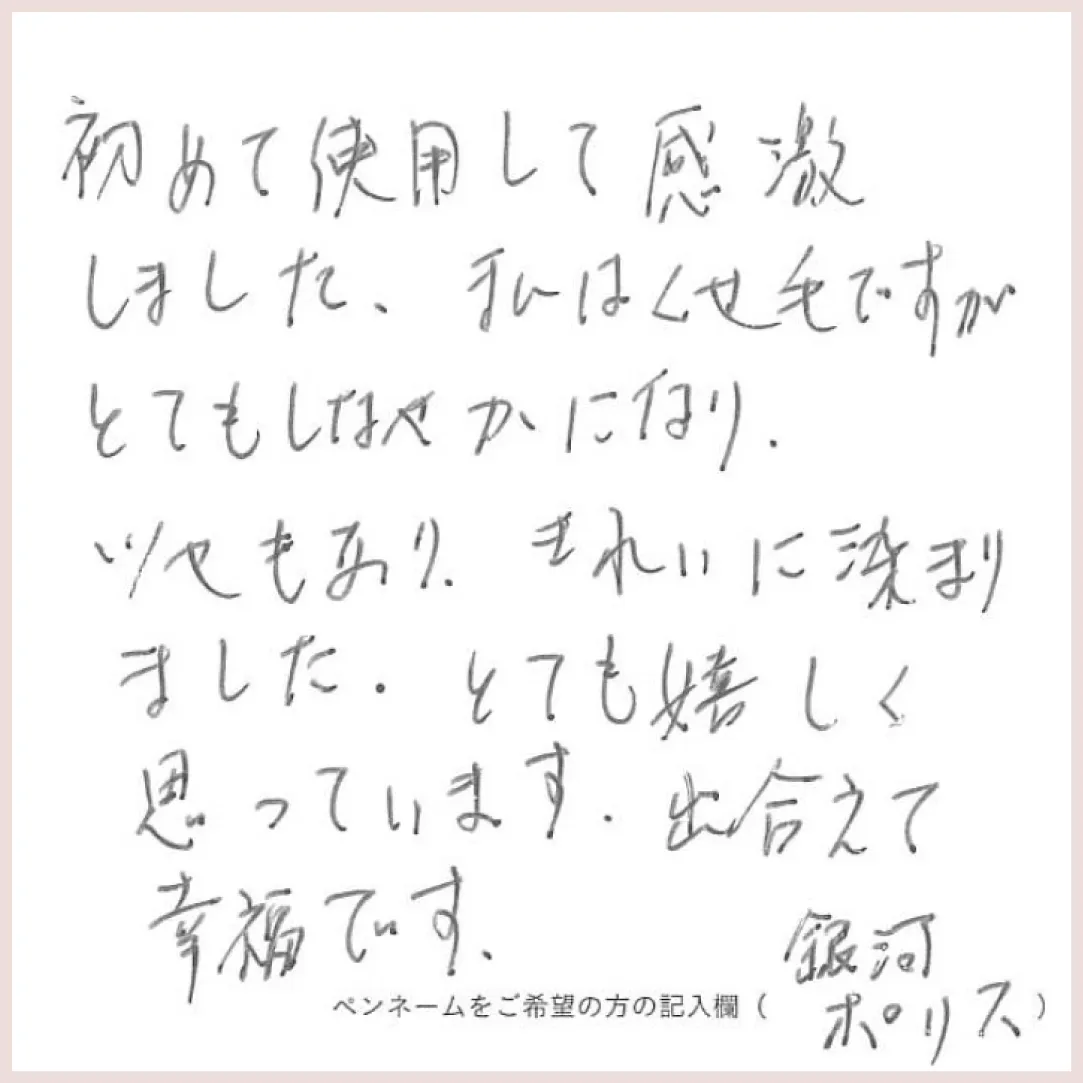 初めて使用して感激
しました、私はくせ毛ですが
とてもしなやかになり.
ツヤもあり、きれいに染まり
ました.とても嬉しく
思っています.出合えて
幸福です、
ペンネームをご希望の方の記入欄（銀河
ポリス）